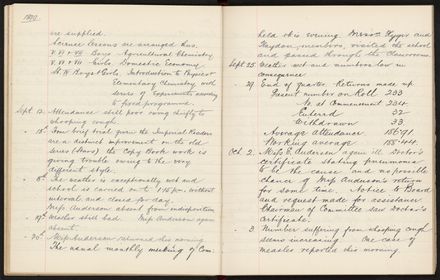 1900
are supplied.
Science lessons are arranged thus.
V. VI & VII Boys Agricultural Chemistry
V. VI & VII Girls Domestic Economy
Boys & Girls. Introduction to Physics &
Elementary Chemistry with
series of Experiments according
to fixed programme.
Sept 13. Attendance still poor owing chiefly to
whooping cough.
From brief trial given the Imperial Readers
are a distinct improvement on the old
series (Stars) the Copy Book work is
giving trouble owing to the very
different style.
The weather is exceptionally wet and
school is carried on to 1.45 p.m. without
interval and closed for day.
Miss Anderson absent from indisposition
Weather still bad. Miss Anderson again
absent.
Miss Anderson returned this morning
The usual monthly meeting of Com.
held this evening. Messrs.
members, visited the school
and passed through the Classrooms.
Sept 25 Weather wet and numbers low in
consequence
29. End of quarter. Returns made up
Present number on Roll 233
Do at Commencement 234
Entered 32
Withdrawn 33
Average Attendance 186.91
Working average 188.44.
Oct 2. Miss E. Anderson again ill. Doctor's
certificate stating pneumonia
to be the cause and no possible
chance of Miss Anderson's return
for some time. Notice to Board
and request made for assistance
Chairman of Committee saw Doctor's
Certificate.
3. Number suffering from whooping cough
seems increasing. One case of
measles reported this morning